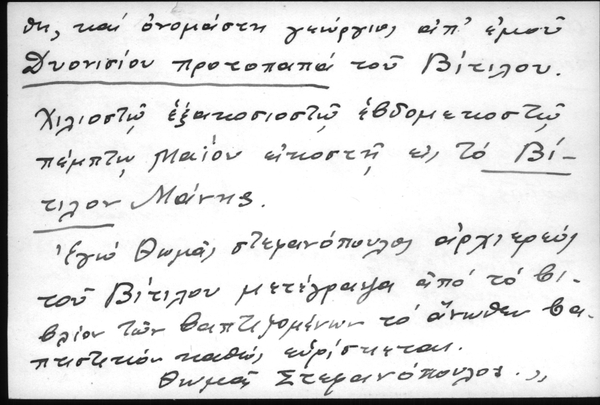 θη, καί ὀνομάστη γεώργιος ἀπ' ἐμοῦ
Δυονισίου πρωτοπαπά τοῦ Βίτιλου.
Χιλιοστῷ ἑξακοσιοστῷ ἑβδομεκοστῷ
πέμπτῳ Μαΐου εἰκοστῇ εἰς τό Βί-
τιλον Μάνης.
Ἐγώ Θωμᾶς στεφανόπουλος ἀρχιερεύς
τοῦ Βίτιλου μετέγραψα ἀπό τό βι-
βλίον τῶν βαπτιζομένων τό ἄνωθεν βα-
πτιστικόν καθώς εὑρίσκεται.
Θωμᾶς Στεφανόπουλος. ,,